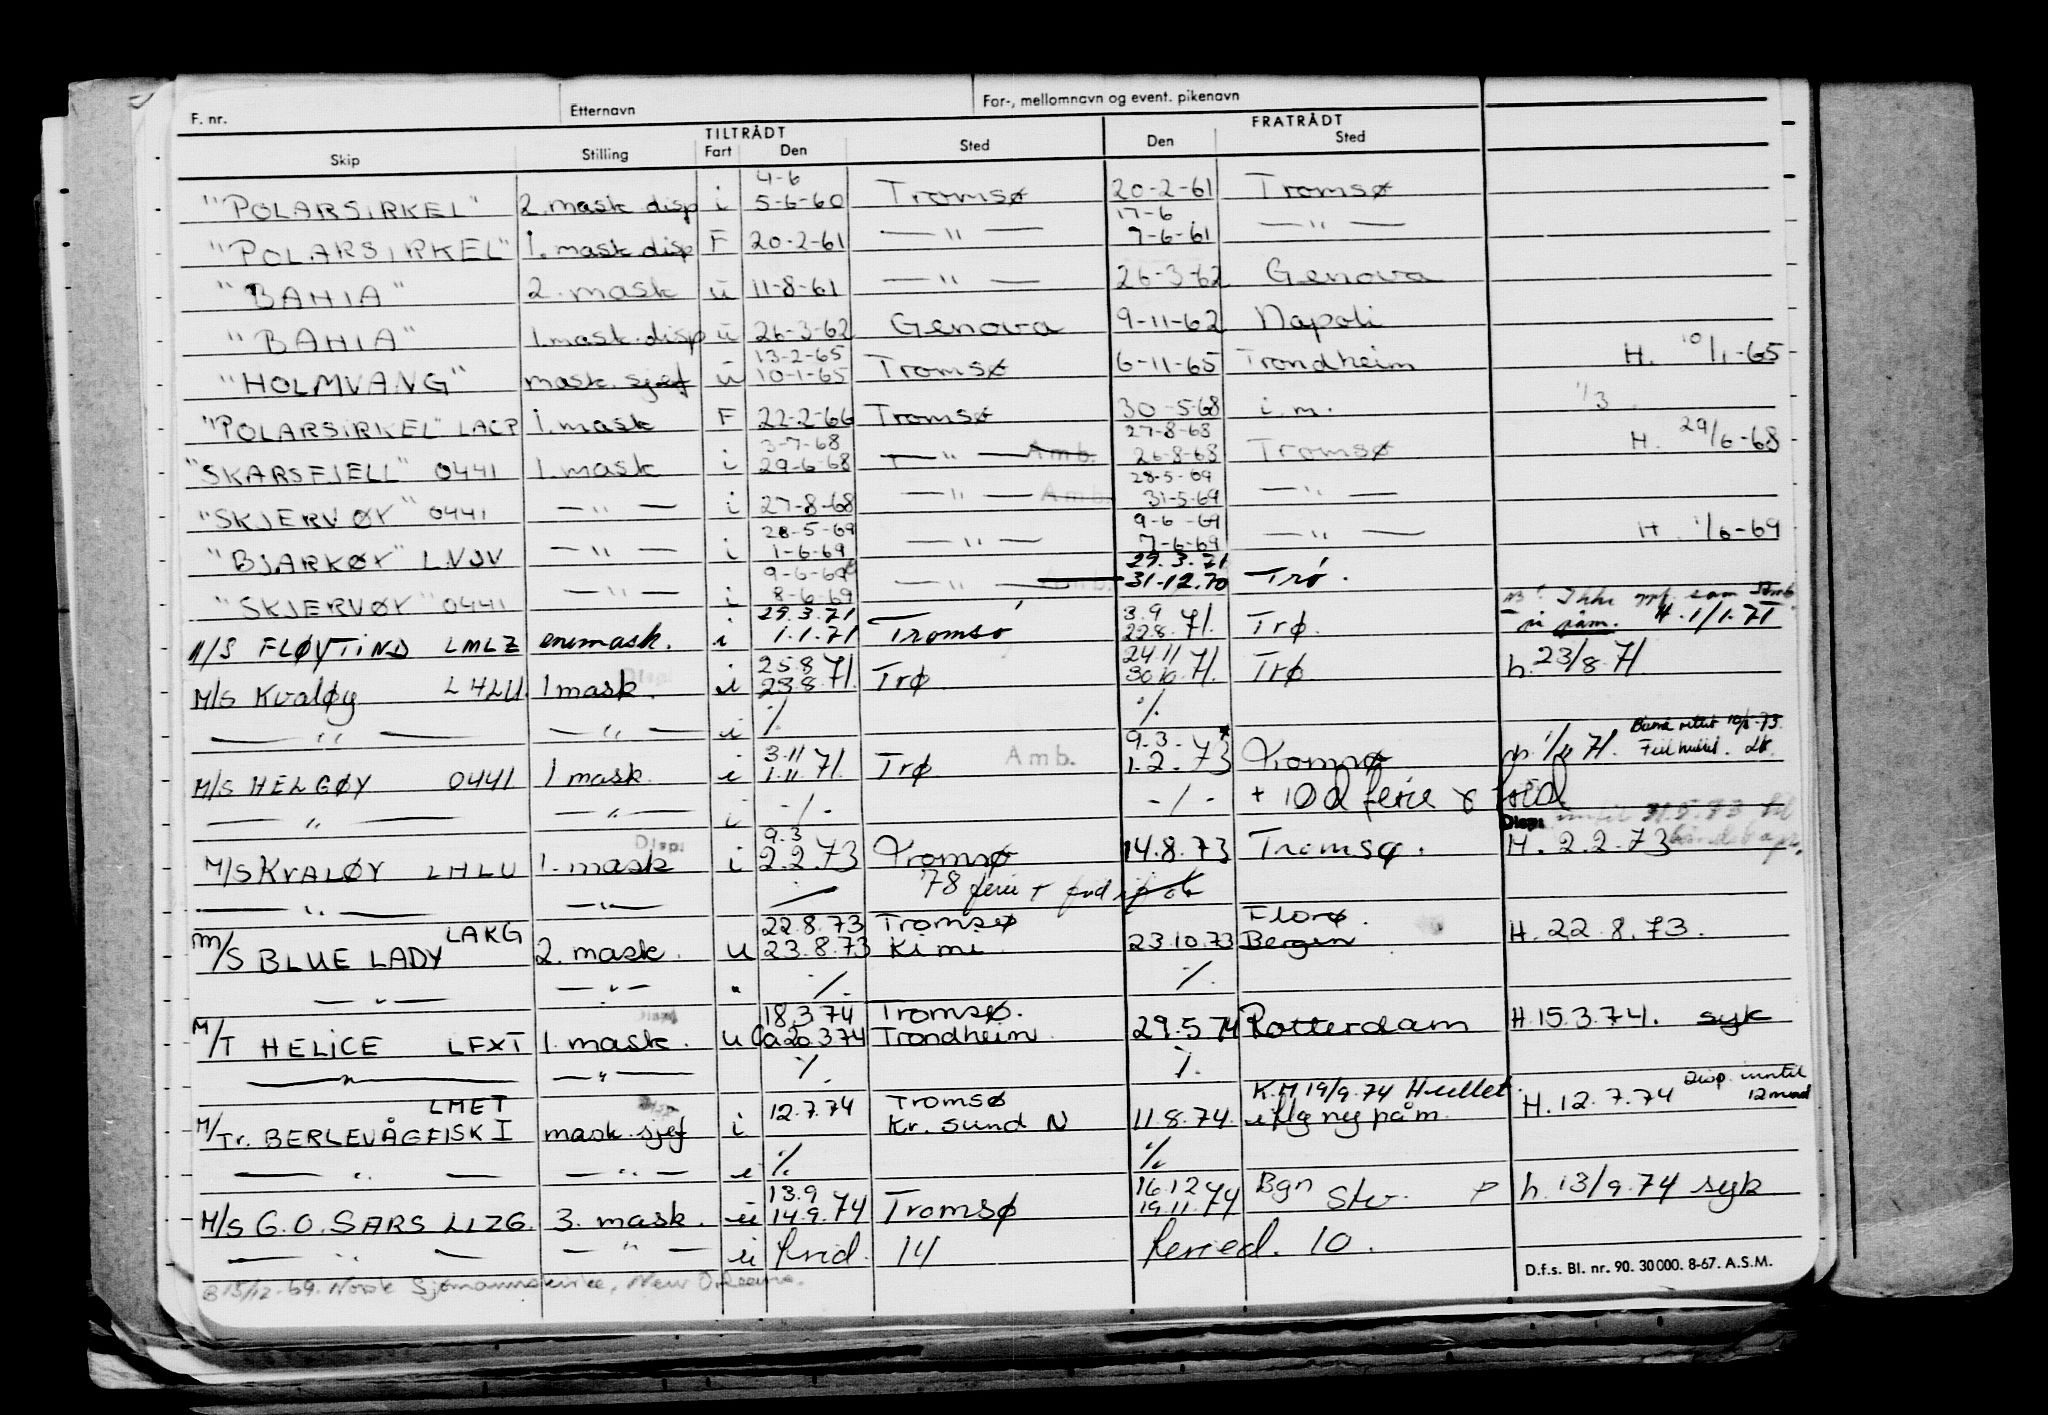 F. nr. Etternavn For-, mellomnavn og event. pikenavn
TILTRÅDT FRATRÅDT
Skip Stilling Fart Den Sted Den Sted
4-6
"POLARSIRKEL" 2. mask disp i 5-6-60 Tromsø 20-2-61 Tromsø
17-6
"POLARSIRKEL" 1. mask disp F 20-2-61 — " — 9-6-61 — " —
"BAHIA" 2. mask u 11-8-61 — " — 26-3-62 Genova
"BAHIA" 1. mask disp u 26-3-62 Genova 9-11-62 Napoli
13-2-65
"HOLMVANG" mask. sjef u 10-1-65 Tromsø 6-11-65 Trondheim H. 10/1-65
"POLARSIRKEL" LACP 1. mask F 22-2-66 Tromsø 30-5-68 i. m. 1/3
3-7-68 27-8-68
"SKARSFJELL" 0441 1. mask i 29-6-68 — " — Amb. 26-8-68 Tromsø H. 29/6-68
28-5-69
"SKJERVØY" 0441 — " — i 27-8-68 — " — Amb. 31-5-69 — " —
28-5-69 9-6-69
"BJARKØY" LNJV — " — i 1-6-69 — " — 7-6-69 — " — H 1/6-69
9-6-69 29.3.71
"SKJERVØY" 0441 — " — i 8-6-69 — " — Amb. 31-12.70 Trø.
29.3.71 3.9 NB! Ikke som
M/S FLØYTIND LMLZ enemask. i 1.1.71 Tromsø 22.8.71. Trø. på påm. H. 1/1.71
25.8 24.11
M/S Kvaløy LHLU. 1 mask. i 23.8.71. Trø 30.10.71. Trø h. 23/8.71
— " — — " — i ./. ./.
3.11 9.3. 10/5-73.
M/S HELGØY 0441 1 mask. i 1.11.71. Trø Amb. 1.2.73 Tromsø 1/11 71. Feilhullet.
— " — — " — i -/- -/- + 10d ferie
9.3 Disp. Disp: 31.5.73
M/S KVALØY LHLU 1. mask i 2.2.73 Tromsø 14.8.73 Tromsø. H. 2.2.73
— " — — " — 78 ferie + frd
22.8.73 Tromsø Florø.
M/S BLUE LADY LAKG 2. mask. u 23.8.73 Kimi 23.10.73 Bergen H. 22.8.73.
— " — — " — " ./. ./.
18.3.74 Tromsø.
M/T HELICE LFXT 1. mask. u Ca 20.3.74 Trondheim 29.5.74 Rotterdam H. 15.3.74. syk
— " — — " — ./. ./.
LMET 12.7.74 Tromsø K.M 19/9.74 Hullet Disp. inntil
M/Tr. BERLEVÅGFISK I mask. sjef i Kr. sund N 11.8.74. ny påm. H. 12.7.74 12 mnd
— " — — " — i ./. ./.
13.9 16.12 Bgn
M/S G. O. SARS LIZG. 3. mask. u 14.9.74 Tromsø 19.11.74 Stv. P h. 13/9.74 syk
— " — — " — u frid. 14 feried. 10.
B 15/12-69. Norsk Sjømannskirke, New Orleans.
D.f.s. Bl. nr. 90. 30 000. 8-67. A.S.M.